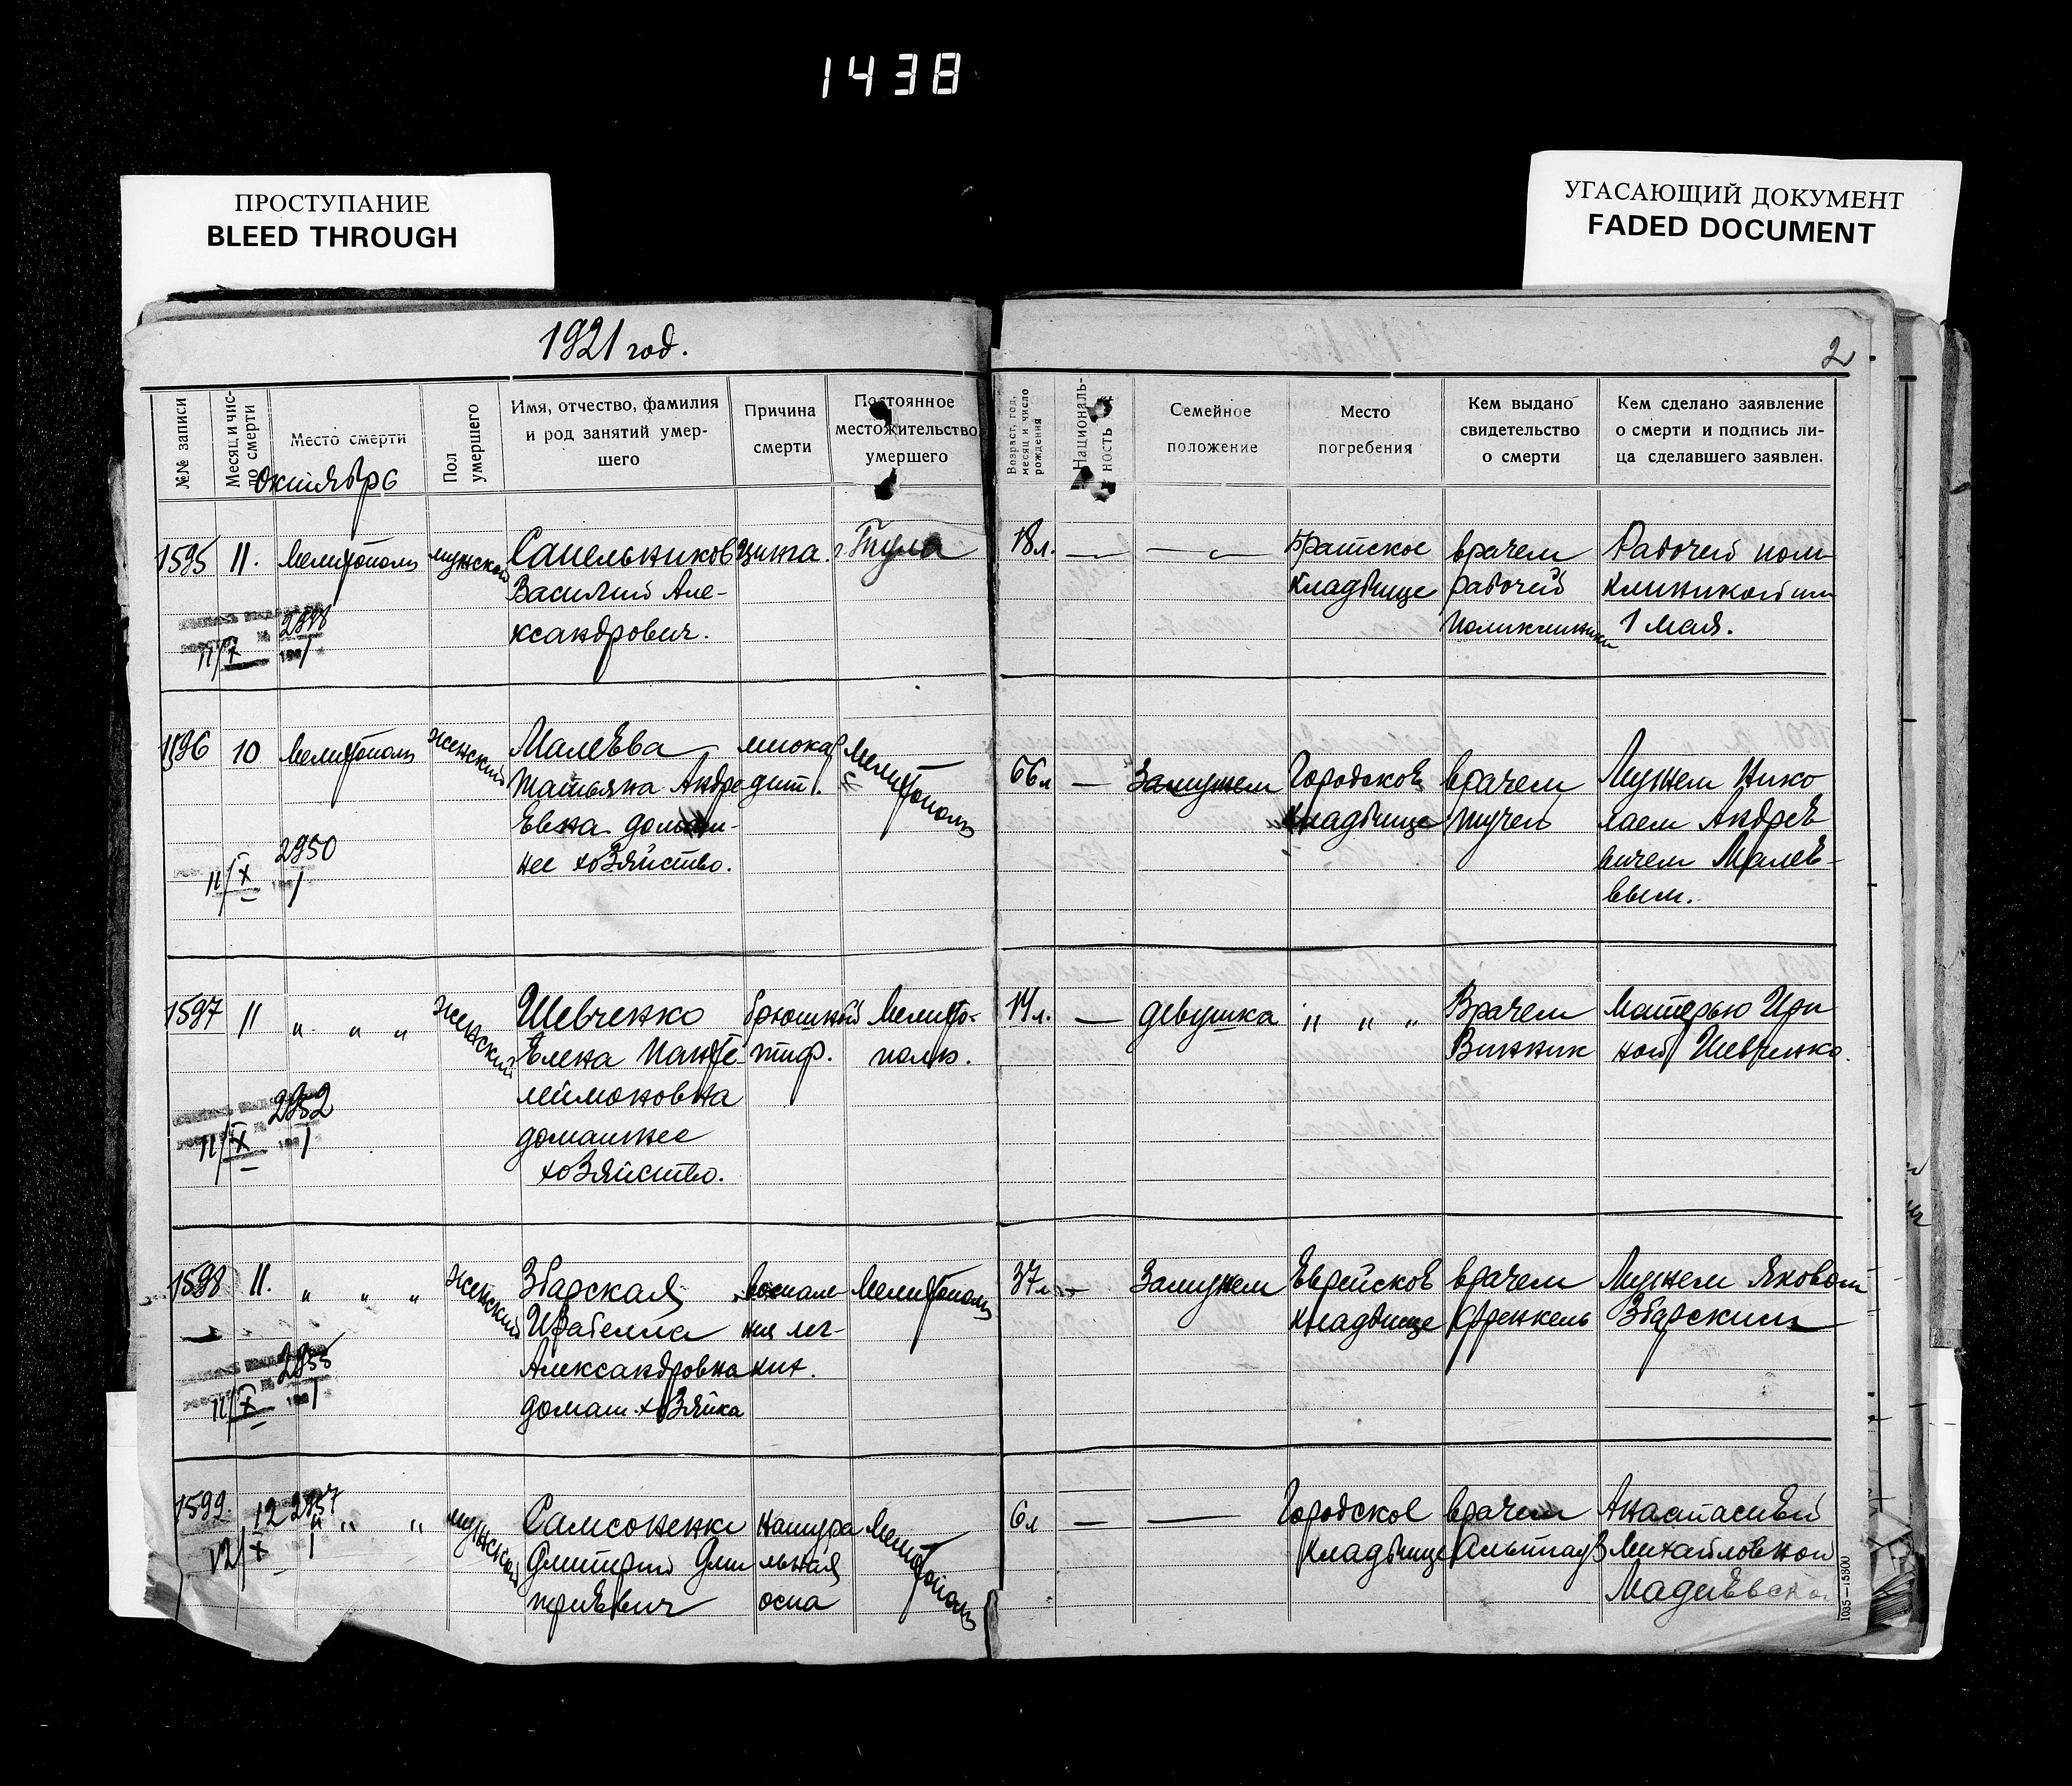 1438
ПРОСТУПАНИЕ
BLEED THROUGH
УГАСАЮЩИЙ ДОКУМЕНТ
FADED DOCUMENT
1921 год.
2
№№ записи
Месяц и чис-
ло смерти
Место смерти
Октябрь
Пол
умершего
Имя, отчество, фамилия
и род занятий умер-
шего
Причина
смерти
Постоянное
местожительство
умершего
Возраст, год,
месяц и число
рождения
Националь-
ность
Семейное
положение
Место
погребения
Кем выдано
свидетельство
о смерти
Кем сделано заявление
о смерти и подпись ли-
ца сделавшего заявлен.
1595
11.
Мелитополь
мужской
Сапельников
Василий Але-
ксандрович.
цинга.
г. Тула
18 л.
—
—
Братское
кладбище
врачем
рабочей
поликлиники
Рабочей поли
клиникой им
1 мая.
2948
11/X
1
1596
10
Мелитополь
женский
Малеева
Татьяна Андре
евна домаш-
нее хозяйство.
миокар
дит.
Мелитополь
66 л
—
Замужем
Городское
кладбище
врачем
Мужем Нико
лаем Андрее
вичем Малее-
вым.
2950
11/X
1
1597
11
„ „ „
женский
Шевченко
Елена Панте
леймоновна
домашнее
хозяйство.
брюшной
тиф.
Мелито-
поль.
—
девушка
„ „ „
Врачем
Винник
Матерью Ири
ной Шевченко.
2952
11/X
1
1598
11.
„ „ „
женский
Збарская
Изабелла
Александровна
домаш. хозяйка
воспале
ния лег-
ких.
Мелитополь
37 л
—
Замужем
Еврейское
кладбище
врачем
Френкель
Мужем Яковом
Збарским
2955
11/X
1
1599.
12
„ „ „
мужской
Самсоненко
Дмитрий Дми
триевич
натура
льная
оспа
Мелитополь
6 л
—
—
Городское
кладбище
врачем
Альтгауз
Анастасией
Михайловной
2957
12/X
1
1035—15800